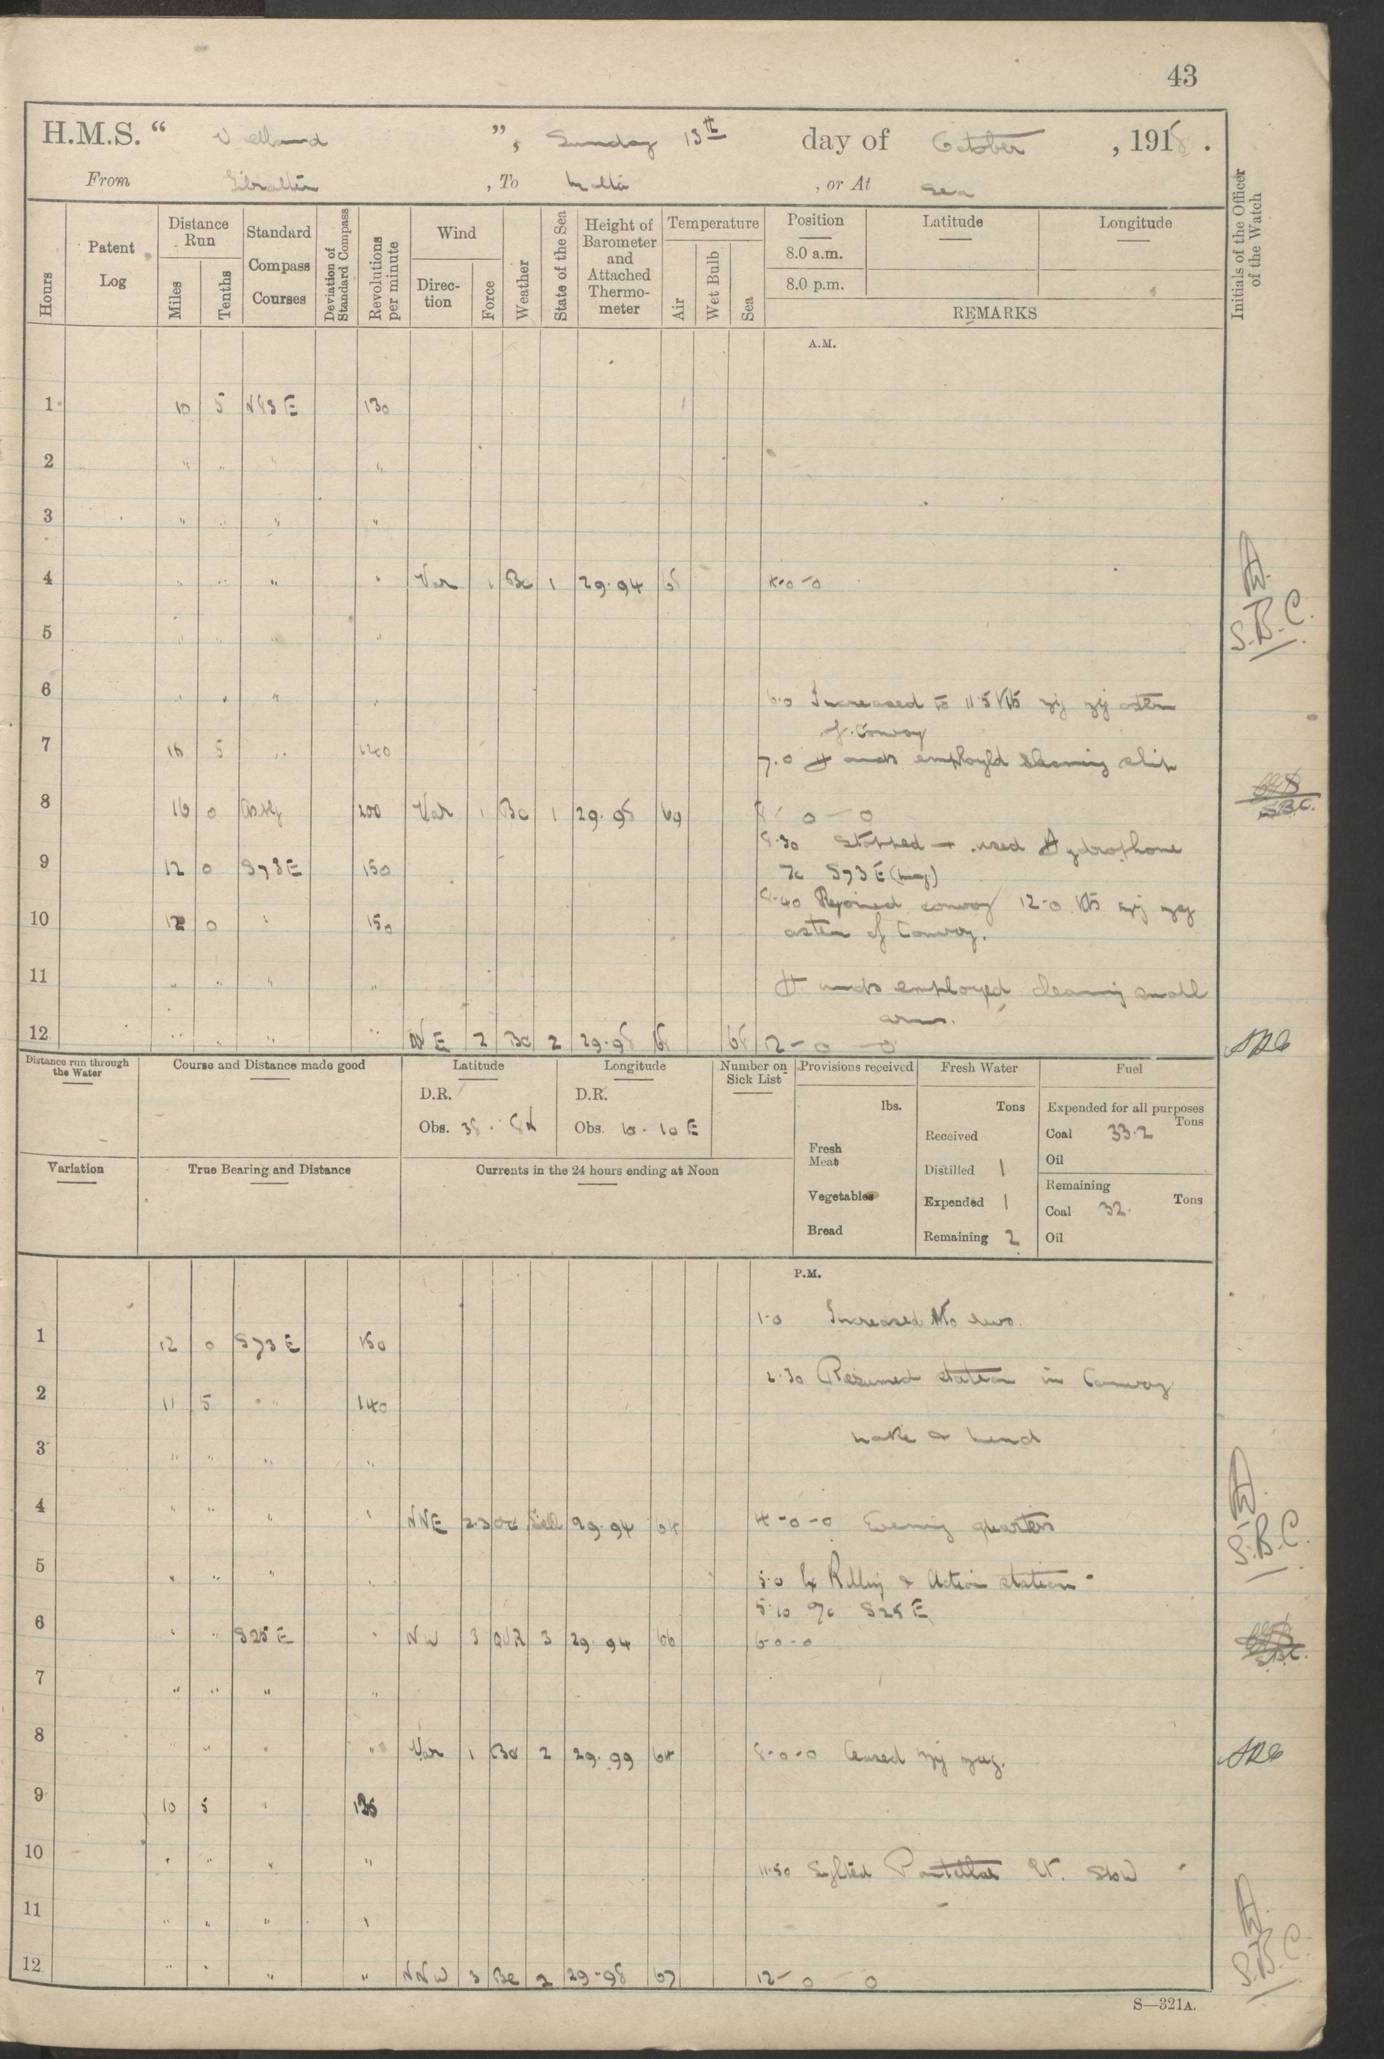 43
H.M.S. " Welland ", Sunday 13th day of October, 1918.
From Gibraltar, To Malta, or At Sea
Hours
Patent Log
Distance Run
Miles
Tenths
Standard Compass Courses
Deviation of Standard Compass
Revolutions per minute
Wind
Direction
Force
Weather
State of the Sea
Height of Barometer and Attached Thermometer
Temperature
Air
Wet Bulb
Sea
Position
8.0 a.m.
8.0 p.m.
Latitude
Longitude
REMARKS
Initials of the Officer of the Watch
A.M.
1 10 5 N83E 130
2 " " " "
3 " " " "
4 " " " " Var 1 Bc 1 29.94 4-0-0
S.B.C.
5 " " " "
6 " " " " 6.0 Increased to 11.5 Kts zig zig astern
of Convoy
7 5 " 140 7.0 Hands employed cleaning ship
8 10 0 200 Var 1 Bc 1 29.95 69 8-0-0
S.B.C.
8.30 Stopped + used Hydrophone
9 12 0 S73E 150 S73E (mag)
8.40 Rejoined convoy 12-0 Kts zig zag
10 12 0 " 150 astern of Convoy.
11 " " " " Hands employed cleaning small
arms.
12 " " " " NE 2 Bc 2 29.98 68 12-0-0
Distance run through the Water
Course and Distance made good
Latitude
D.R.
Obs. 38. 8N
Longitude
D.R.
Obs. 10.10E
Number on Sick List
Provisions received
lbs.
Fresh Meat
Vegetables
Bread
Fresh Water
Tons
Received
Distilled 1
Expended 1
Remaining 2
Fuel
Expended for all purposes
Tons
Coal 33.2
Oil
Remaining
Tons
Coal 32.
Oil
Variation
True Bearing and Distance
Currents in the 24 hours ending at Noon
P.M.
1.0 Increased
1 12 0 S73E 150
2.30 Resumed station in Convoy
2 11 5 " 140
make & mend
3 " " " "
4 " " " " NNE 2.3 Swell 29.94 4-0-0 Evening quarters
S.B.C.
5 " " " " 5.0 Action stations
5.10 S25E
6 " " S25E " NW 3 3 29.94 66 6-0-0
7 " " " "
8 " " " " Var 1 Bc 2 29.99 64 8-0-0 Ceased zig zag.
9 10 5 " 135
10 " " " " 11.50 Sighted Lt. SbW
11 " " " "
12 " " " " NNW 3 Bc 2 29-98 67 12-0-0
S.B.C.
S—321A.